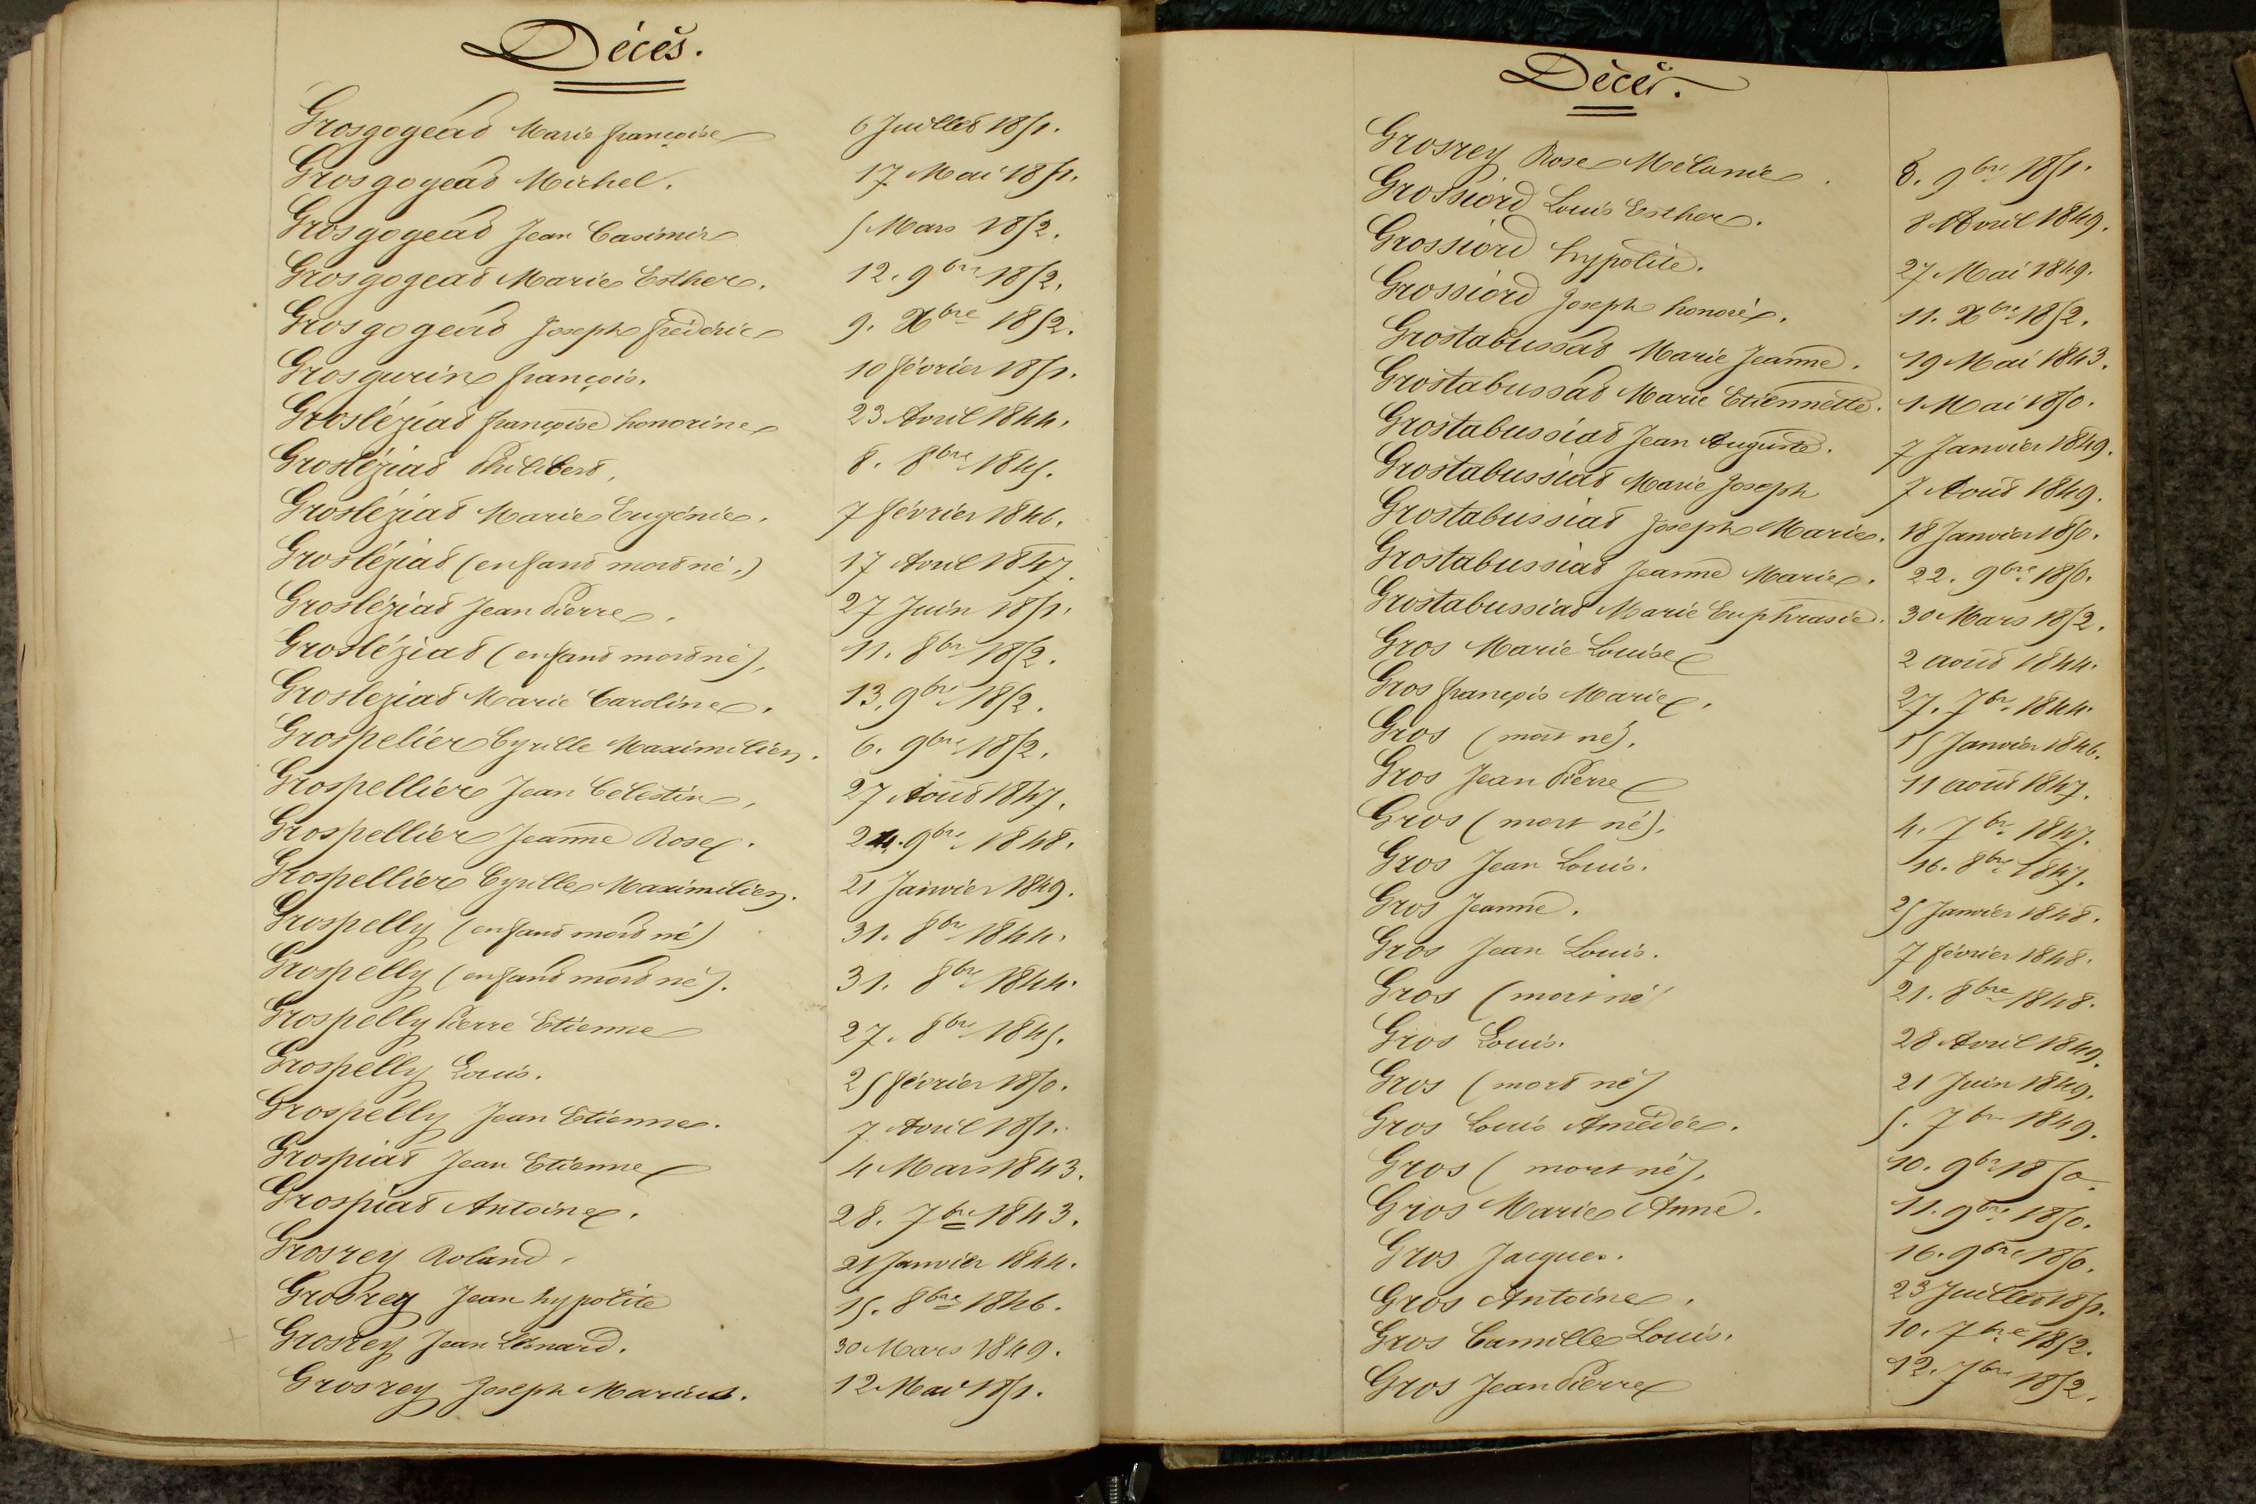 Décès.
Grosgogeat Marie françoise 6 Juillet 1851.
Grosgogeat Michel. 17 Mai 1851.
Grosgogeat Jean Casimir 5 Mars 1852.
Grosgogeat Marie Esther. 12. 9bre 1852.
Grosgogeat Joseph frédéric 9. Xbre 1852.
Grosgurin françois. 10 février 1851.
Grosléziat françoise honorine 23 Avril 1844.
Grosléziat Philibert. 8. 8bre 1845.
Grosléziat Marie Eugénie. 7 février 1846.
Grosléziat (enfant mort né.) 17 Avril 1847.
Grosléziat Jean Pierre. 27 Juin 1851.
Grosléziat (enfant mort né), 11. 8bre 1852.
Grosleziat Marie Caroline. 13. 9bre 1852.
Grospelier Cyrille Maximilien. 6. 9bre 1852.
Grospellier Jean Célestin, 27 Août 1847.
Grospellier Jeanne Rose. 24. 9bre 1848.
Grospellier Cyrille Maximilien. 21 Janvier 1849.
Grospelly (enfant mort né) 31. 8bre 1844.
Grospelly (enfant mort né). 31. 8bre 1844.
Grospelly Pierre Etienne 27. 8bre 1845.
Grospelly Louis. 25 février 1850.
Grospelly Jean Etienne. 7 Avril 1851.
Grospiat Jean Etienne 4 Mars 1843.
Grospiat Antoine. 28. 7bre 1843.
Grosrey Roland. 21 Janvier 1844.
Grosrey Jean hypolite 15. 8bre 1846.
Grosrey Jean Léonard. 30 Mars 1849.
Grosrey Joseph Marius. 12 Mai 1851.
Décès.
Grosrey Rose Mélanie. 8. 9bre 1851.
Grossiord Louis Esther. 8 Avril 1849.
Grossiord hypolite. 27 Mai 1849.
Grossiord Joseph honoré. 11. Xbre 1852.
Grostabussat Marie Jeanne. 19 Mai 1843.
Grostabussat Marie Etiennette. 1 Mai 1850.
Grostabussiat Jean Auguste. 7 Janvier 1849.
Grostabussiat Marie Joseph 7 Août 1849.
Grostabussiat Joseph Marie. 18 Janvier 1850.
Grostabussiat Jeanne Marie. 22. 9bre 1850.
Grostabussiat Marie Euphrasie. 30 Mars 1852.
Gros Marie Louise 2 août 1844.
Gros françois Marie. 27. 7bre 1844.
Gros (mort né). 15 Janvier 1846.
Gros Jean Pierre 11 août 1847.
Gros (mort né). 4. 7bre 1847.
Gros Jean Louis. 16. 8bre 1847.
Gros Jeanne. 25 Janvier 1848.
Gros Jean Louis. 7 février 1848.
Gros (mort né) 21. 8bre 1848.
Gros Louis. 28 Avril 1849.
Gros (mort né) 21 Juin 1849.
Gros Louis Amédée. 5. 7bre 1849.
Gros (mort né). 10. 9bre 1850
Gros Marie Anne. 11. 9bre 1850.
Gros Jacques. 16. 9bre 1850.
Gros Antoine. 23 Juillet 1851.
Gros Camille Louis. 10. 7bre 1852.
Gros Jean Pierre 12. 7bre 1852.